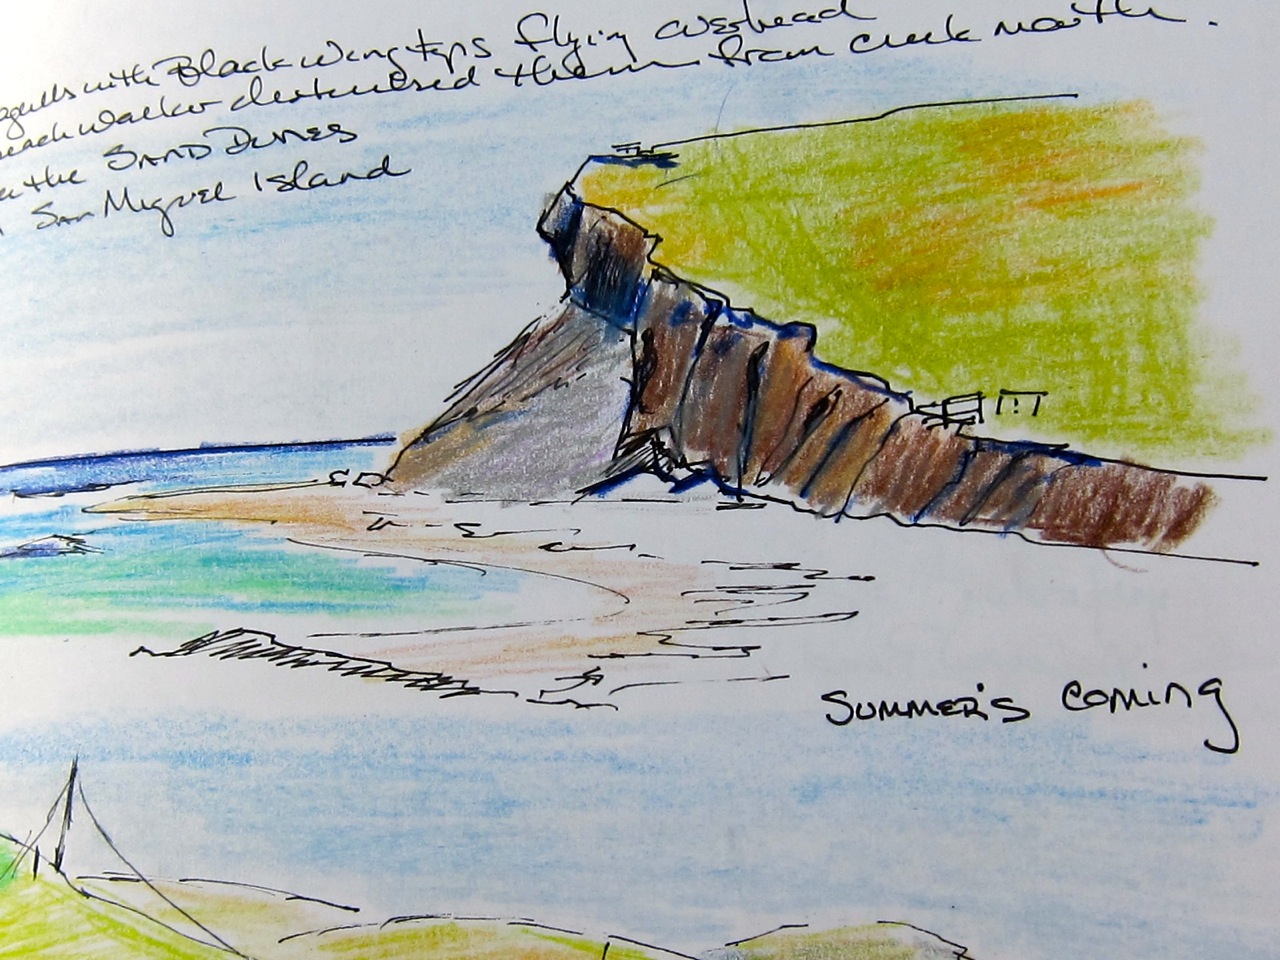 with Black wing tips flying overhead
walker disturbed them from creek mouth.
the SAND DUNES
San Miguel Island
SUMMER'S COMING